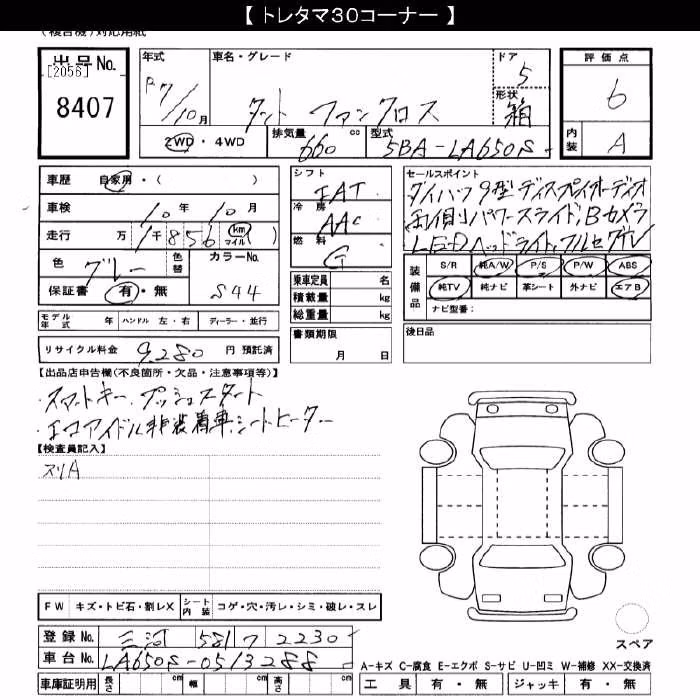 【トレタマ30コーナー】
(複合機)対応用紙
出品No. [2056] 8407
年式 R7/10月
車名・グレード タント ファンクロス
ドア 5
形状 箱
2WD・4WD 排気量 660 cc 型式 5BA-LA650S
評価点 6
内装 A
車歴 自家用・( )
車検 10年10月
走行 万1千856 km マイル ( )
色 グレー 色替 カラーNo. S44
保証書 有・無
シフト IAT
冷房 AAC
燃料 G
乗車定員 名
積載量 kg
総重量 kg
セールスポイント
ダイハツ9型ディスプレイオーディオ
両側パワースライド,Bカメラ
LEDヘッドライト,フルセグTV
装備品 S/R 純A/W P/S P/W ABS
純TV 純ナビ 革シート 外ナビ エアB
ナビ型番:
モデル年式 年 ハンドル 左・右 ディーラー・並行
書類期限 月 日
後日品
リサイクル料金 9,280 円 預託済
【出品店申告欄(不良箇所・欠品・注意事項等)】
・スマートキー,プッシュスタート
・エコアイドル非装着車,シートヒーター
【検査員記入】
スリA
FW キズ・トビ石・割レX シート内装 コゲ・穴・汚レ・シミ・破レ・スレ
スペア
登録No. 三河 581 ワ 2230
車台No. LA650S-0513288
A-キズ C-腐食 E-エクボ S-サビ U-凹ミ W-補修 XX-交換済
車庫証明用 長さ cm 幅 cm 高さ cm
工具 有・無 ジャッキ 有・無